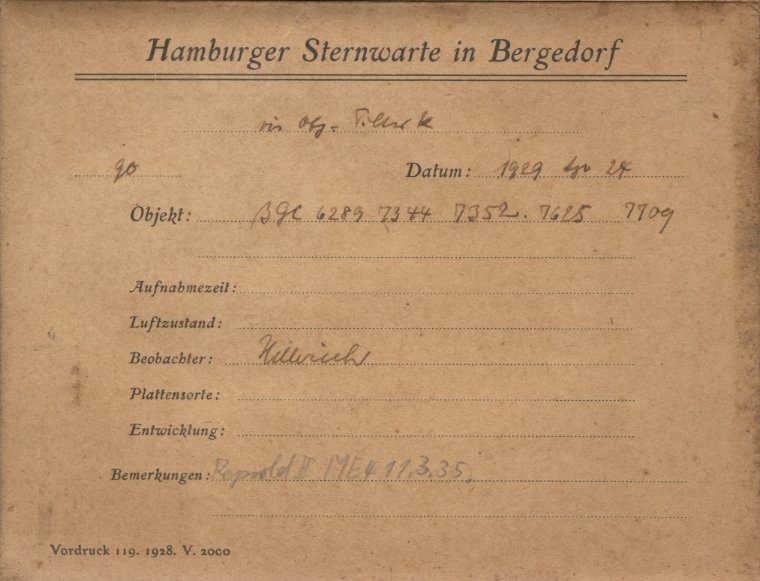 Hamburger Sternwarte in Bergedorf
vis Obj-Filter K
90 Datum: 1929 Apr 24
Objekt: BGC 6289 7344 7352. 7625 7709
Aufnahmezeit:
Luftzustand:
Beobachter:
Plattensorte:
Entwicklung:
Bemerkungen: Repsold II ME4 11.3.35.
Vordruck 119. 1928. V. 2000